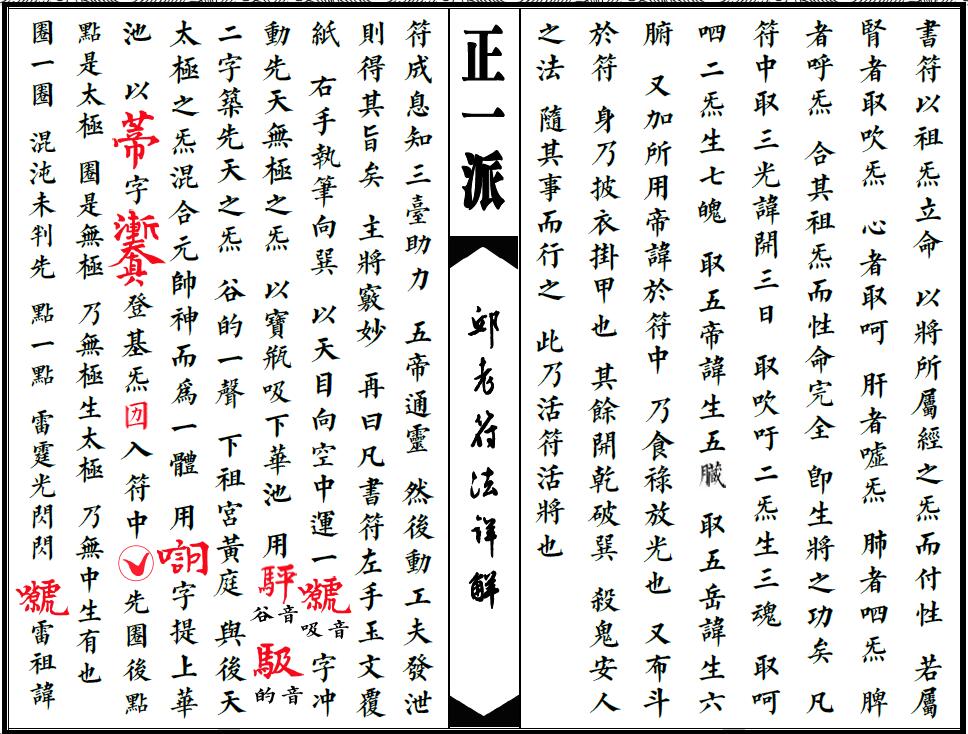 書符以祖炁立命 以將所屬經之炁而付性 若屬
腎者取吹炁 心者取呵 肝者噓炁 肺者呬炁 脾
者呼炁 合其祖炁而性命完全 卽生將之功矣 凡
符中取三光諱開三日 取吹吁二炁生三魂 取呵
呬二炁生七魄 取五帝諱生五臟 取五岳諱生六
腑 又加所用帝諱於符中 乃食祿放光也 又布斗
於符 身乃披衣掛甲也 其餘開乾破巽 殺鬼安人
之法 隨其事而行之 此乃活符活將也
正一派
邱老符法詳解
符成息知三臺助力 五帝通靈 然後動工夫發泄
則得其旨矣 主將竅妙 再曰凡書符左手玉文覆
紙 右手執筆向巽 以天目向空中運一 音吸 字冲
動先天無極之炁 以寶瓶吸下華池 用 音谷 音的
二字築先天之炁 谷的一聲 下祖宮黃庭 與後天
太極之炁混合元帥神而爲一體 用 字提上華
池 以 字 登基炁 入符中 先圈後點
點是太極 圈是無極 乃無極生太極 乃無中生有也
圈一圈 混沌未判先 點一點 雷霆光閃閃 雷祖諱